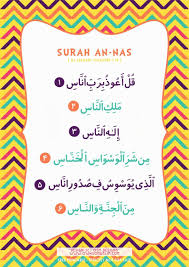 SURAH AN-NAS
قُلْ أَعُوذُ بِرَبِّ ٱلنَّاسِ ١
مَلِكِ ٱلنَّاسِ ٢
إِلَـٰهِ ٱلنَّاسِ ٣
مِن شَرِّ ٱلْوَسْوَاسِ ٱلْخَنَّاسِ ٤
ٱلَّذِى يُوَسْوِسُ فِى صُدُورِ ٱلنَّاسِ ٥
مِنَ ٱلْجِنَّةِ وَٱلنَّاسِ ٦